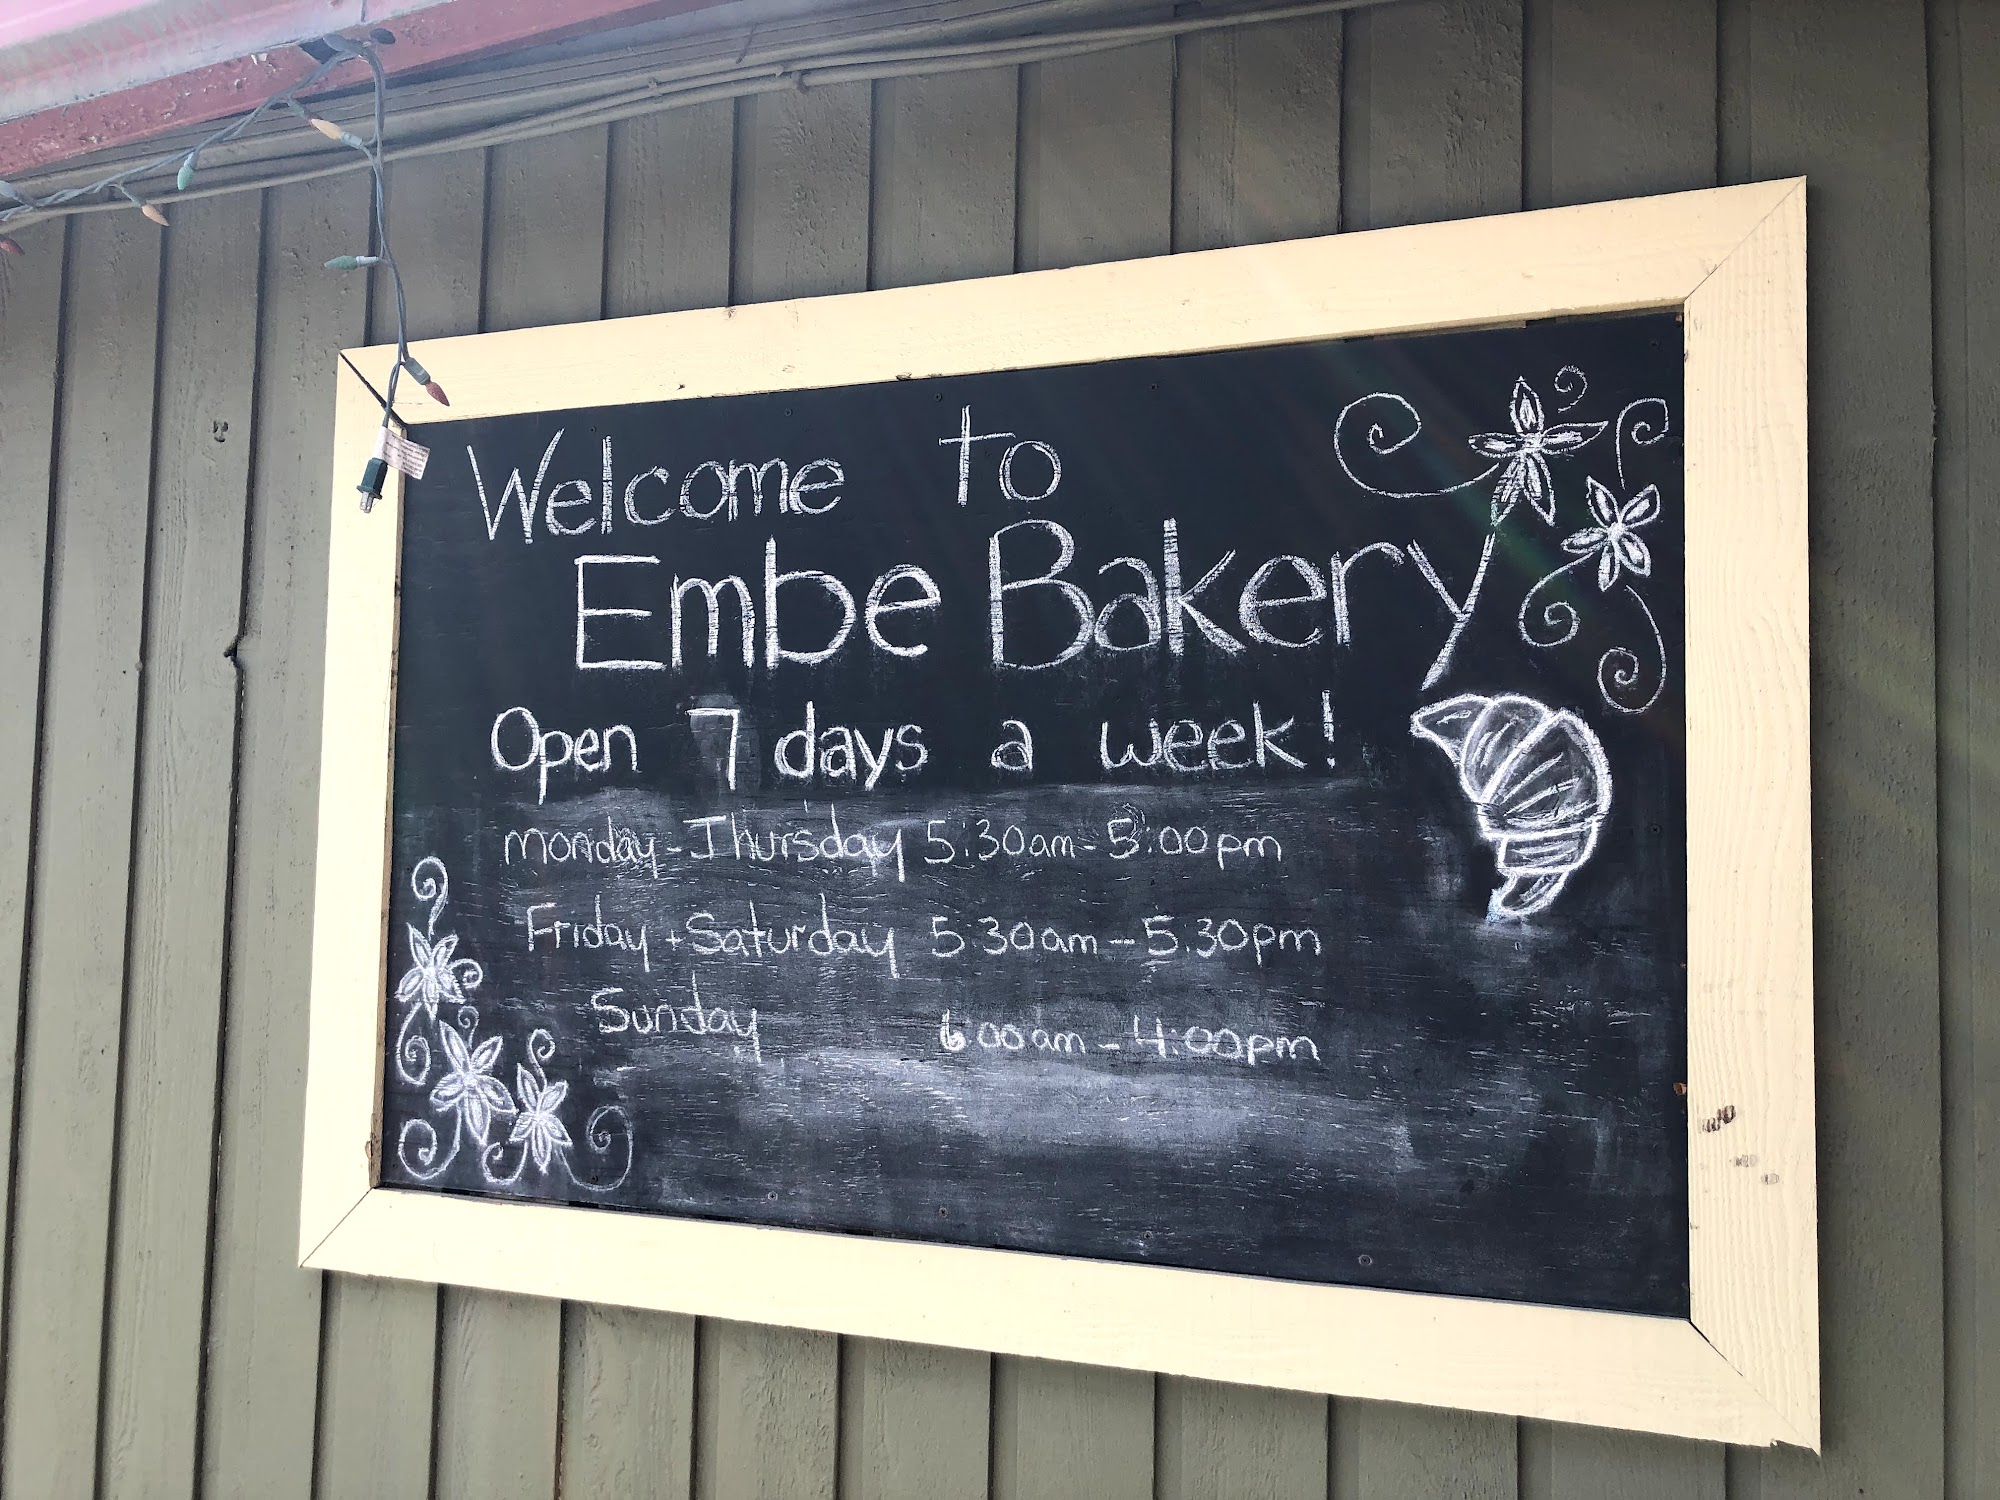 Welcome to
Embe Bakery
Open 7 days a week!
Monday - Thursday 5:30am - 5:00pm
Friday + Saturday 5:30am - 5:30pm
Sunday 6:00am - 4:00pm